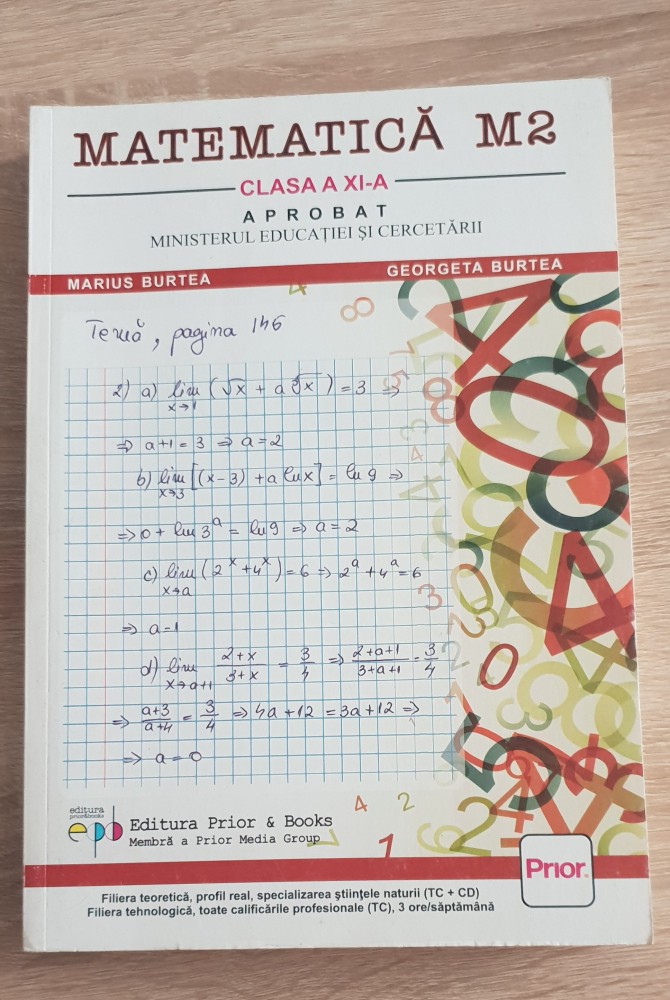 MATEMATICĂ M2
CLASA A XI-A
APROBAT
MINISTERUL EDUCAȚIEI ȘI CERCETĂRII
MARIUS BURTEA GEORGETA BURTEA
Temă, pagina 146
2) a) lim (√x + a ∛x) = 3 ⇒
x→1
⇒ a+1 = 3 ⇒ a=2
b) lim [(x-3) + a ln x] = ln 9 ⇒
x→3
⇒ 0 + ln 3^a = ln 9 ⇒ a=2
c) lim (2^x + 4^x) = 6 ⇒ 2^a + 4^a = 6
x→a
⇒ a=1
d) lim (2+x)/(3+x) = 3/4 ⇒ (2+a+1)/(3+a+1) = 3/4
x→a+1
⇒ (a+3)/(a+4) = 3/4 ⇒ 4a+12 = 3a+12 ⇒
⇒ a=0
editura
prior&books
epb
Editura Prior & Books
Membră a Prior Media Group
Prior
Filiera teoretică, profil real, specializarea științele naturii (TC + CD)
Filiera tehnologică, toate calificările profesionale (TC), 3 ore/săptămână